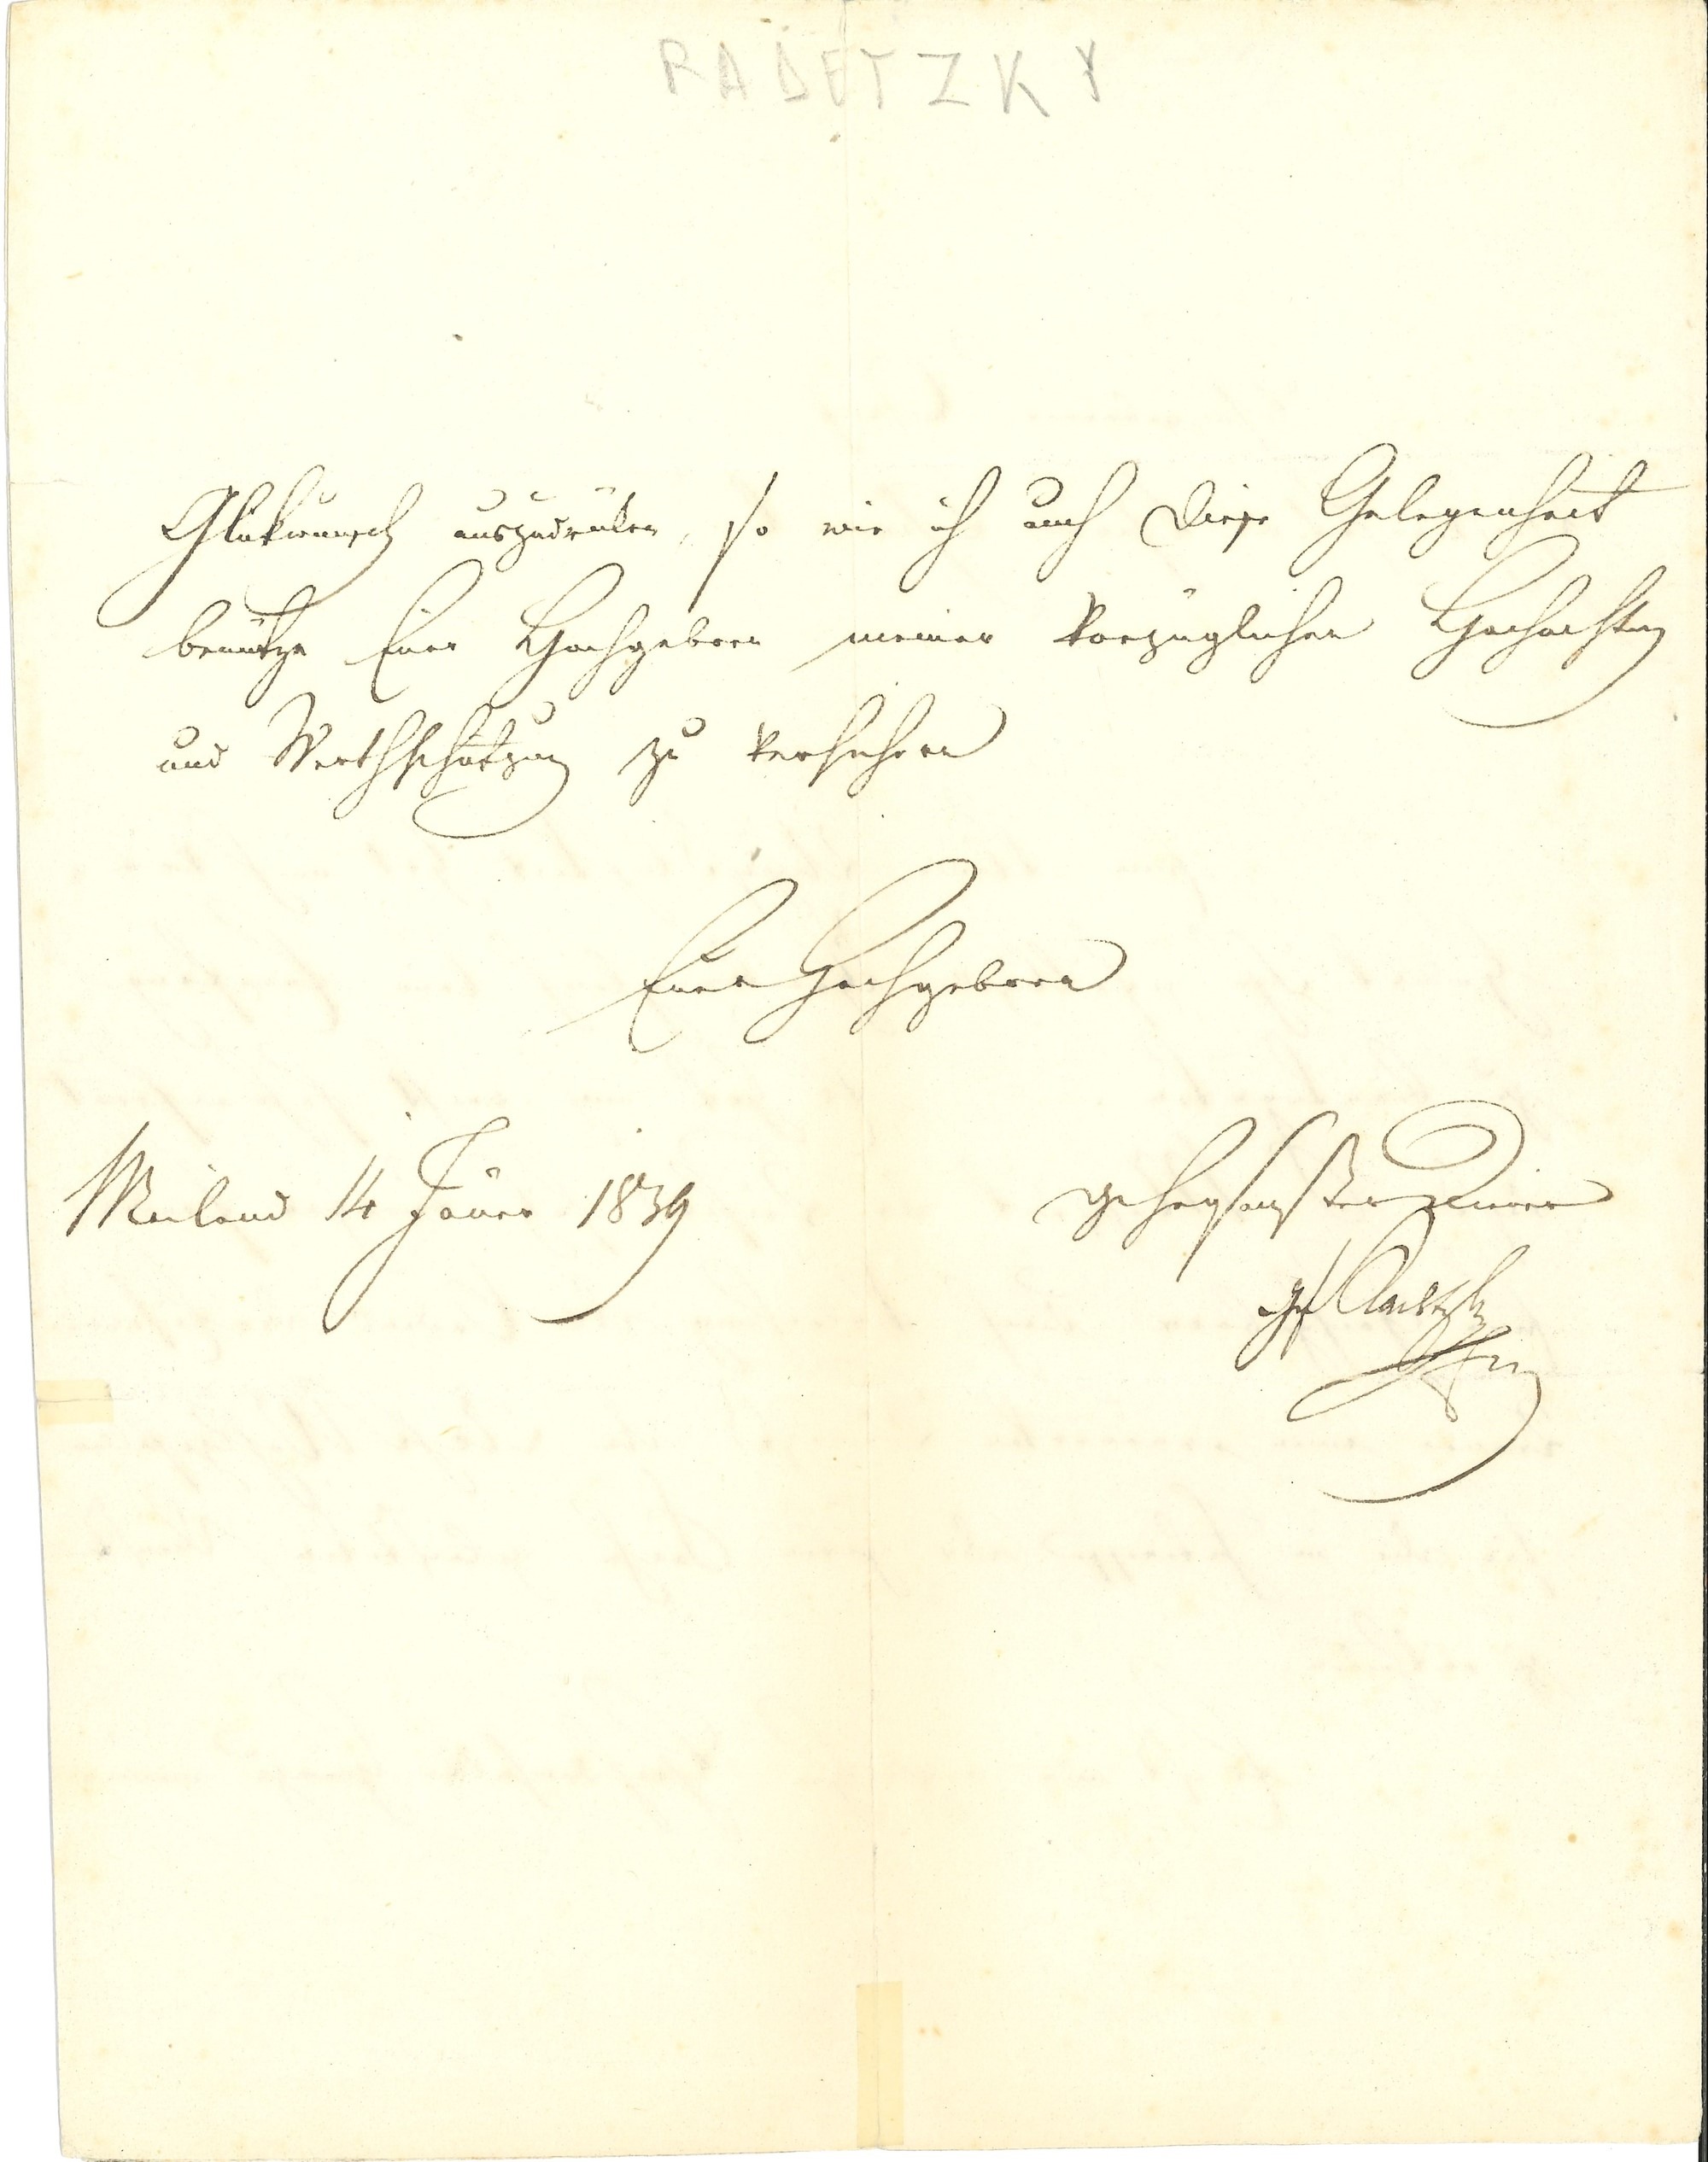 RADETZKY
Glükwunsch auszudrüken, so wie ich auch diese Gelegenheit
benütze Euer Hochgeboren meiner vorzüglichen Hochachtung
und Werthschätzung zu versichern
Euer Hochgeboren
Mailand 14 Jäner 1839
gehorsamster Diener
Gf Radetzky